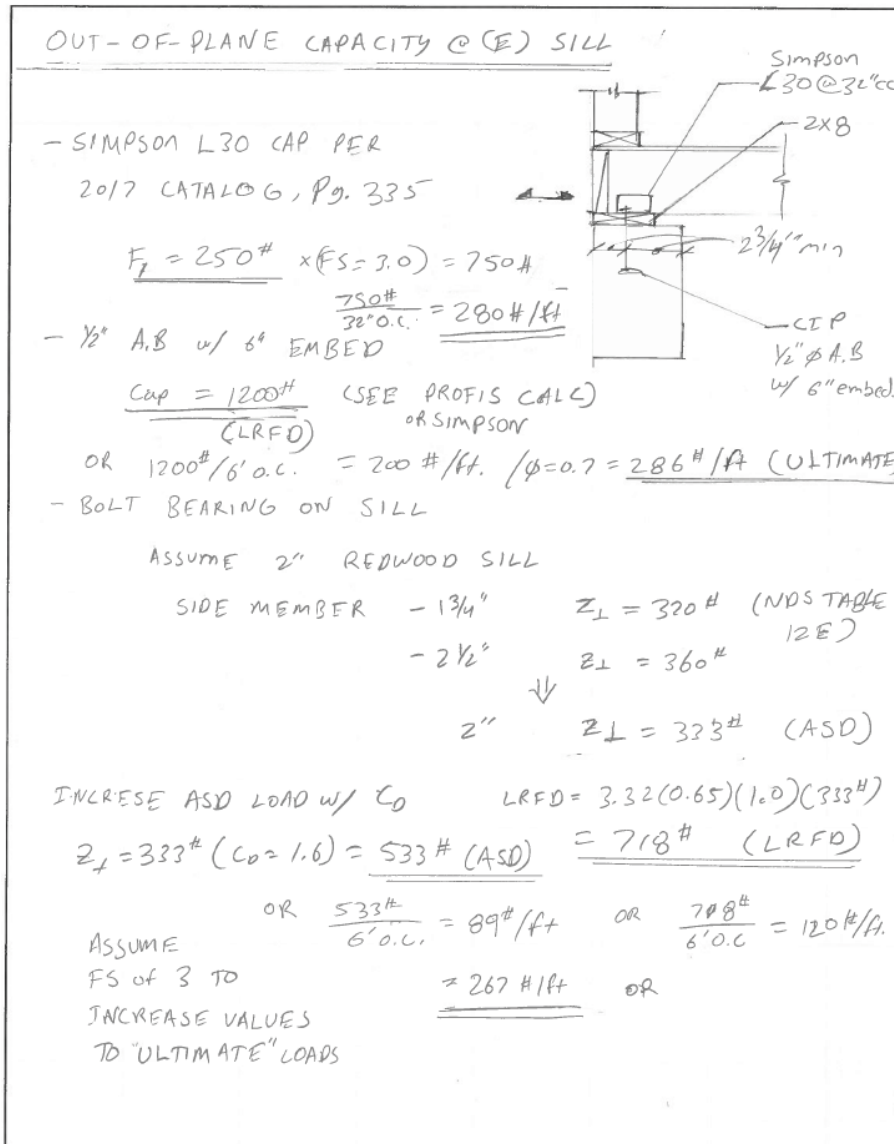 OUT-OF-PLANE CAPACITY @ (E) SILL
Simpson
L30@32"cc
2x8
- SIMPSON L30 CAP PER
2017 CATALOG, Pg. 335
2 3/4" min
F1 = 250# x(FS=3.0) = 750#
750# / 32" O.C. = 280#/ft
CIP
1/2" φ A.B
w/ 6" embed.
- 1/2" A.B w/ 6" EMBED
Cap = 1200# (SEE PROFIS CALC)
(LRFD) OR SIMPSON
OR 1200#/6' O.C. = 200 #/ft. /φ=0.7 = 286#/ft (ULTIMATE)
- BOLT BEARING ON SILL
ASSUME 2" REDWOOD SILL
SIDE MEMBER - 1 3/4" Z⊥ = 320# (NDS TABLE
12E)
- 2 1/2" Z⊥ = 360#
⇓
2" Z⊥ = 333# (ASD)
INCRESE ASD LOAD W/ CD LRFD = 3.32(0.65)(1.0)(333#)
Z⊥ = 333# (CD = 1.6) = 533# (ASD) = 718# (LRFD)
OR 533# / 6' O.C. = 89#/ft OR 718# / 6' O.C = 120#/ft.
ASSUME
FS of 3 TO = 267 #/ft OR
INCREASE VALUES
TO "ULTIMATE" LOADS